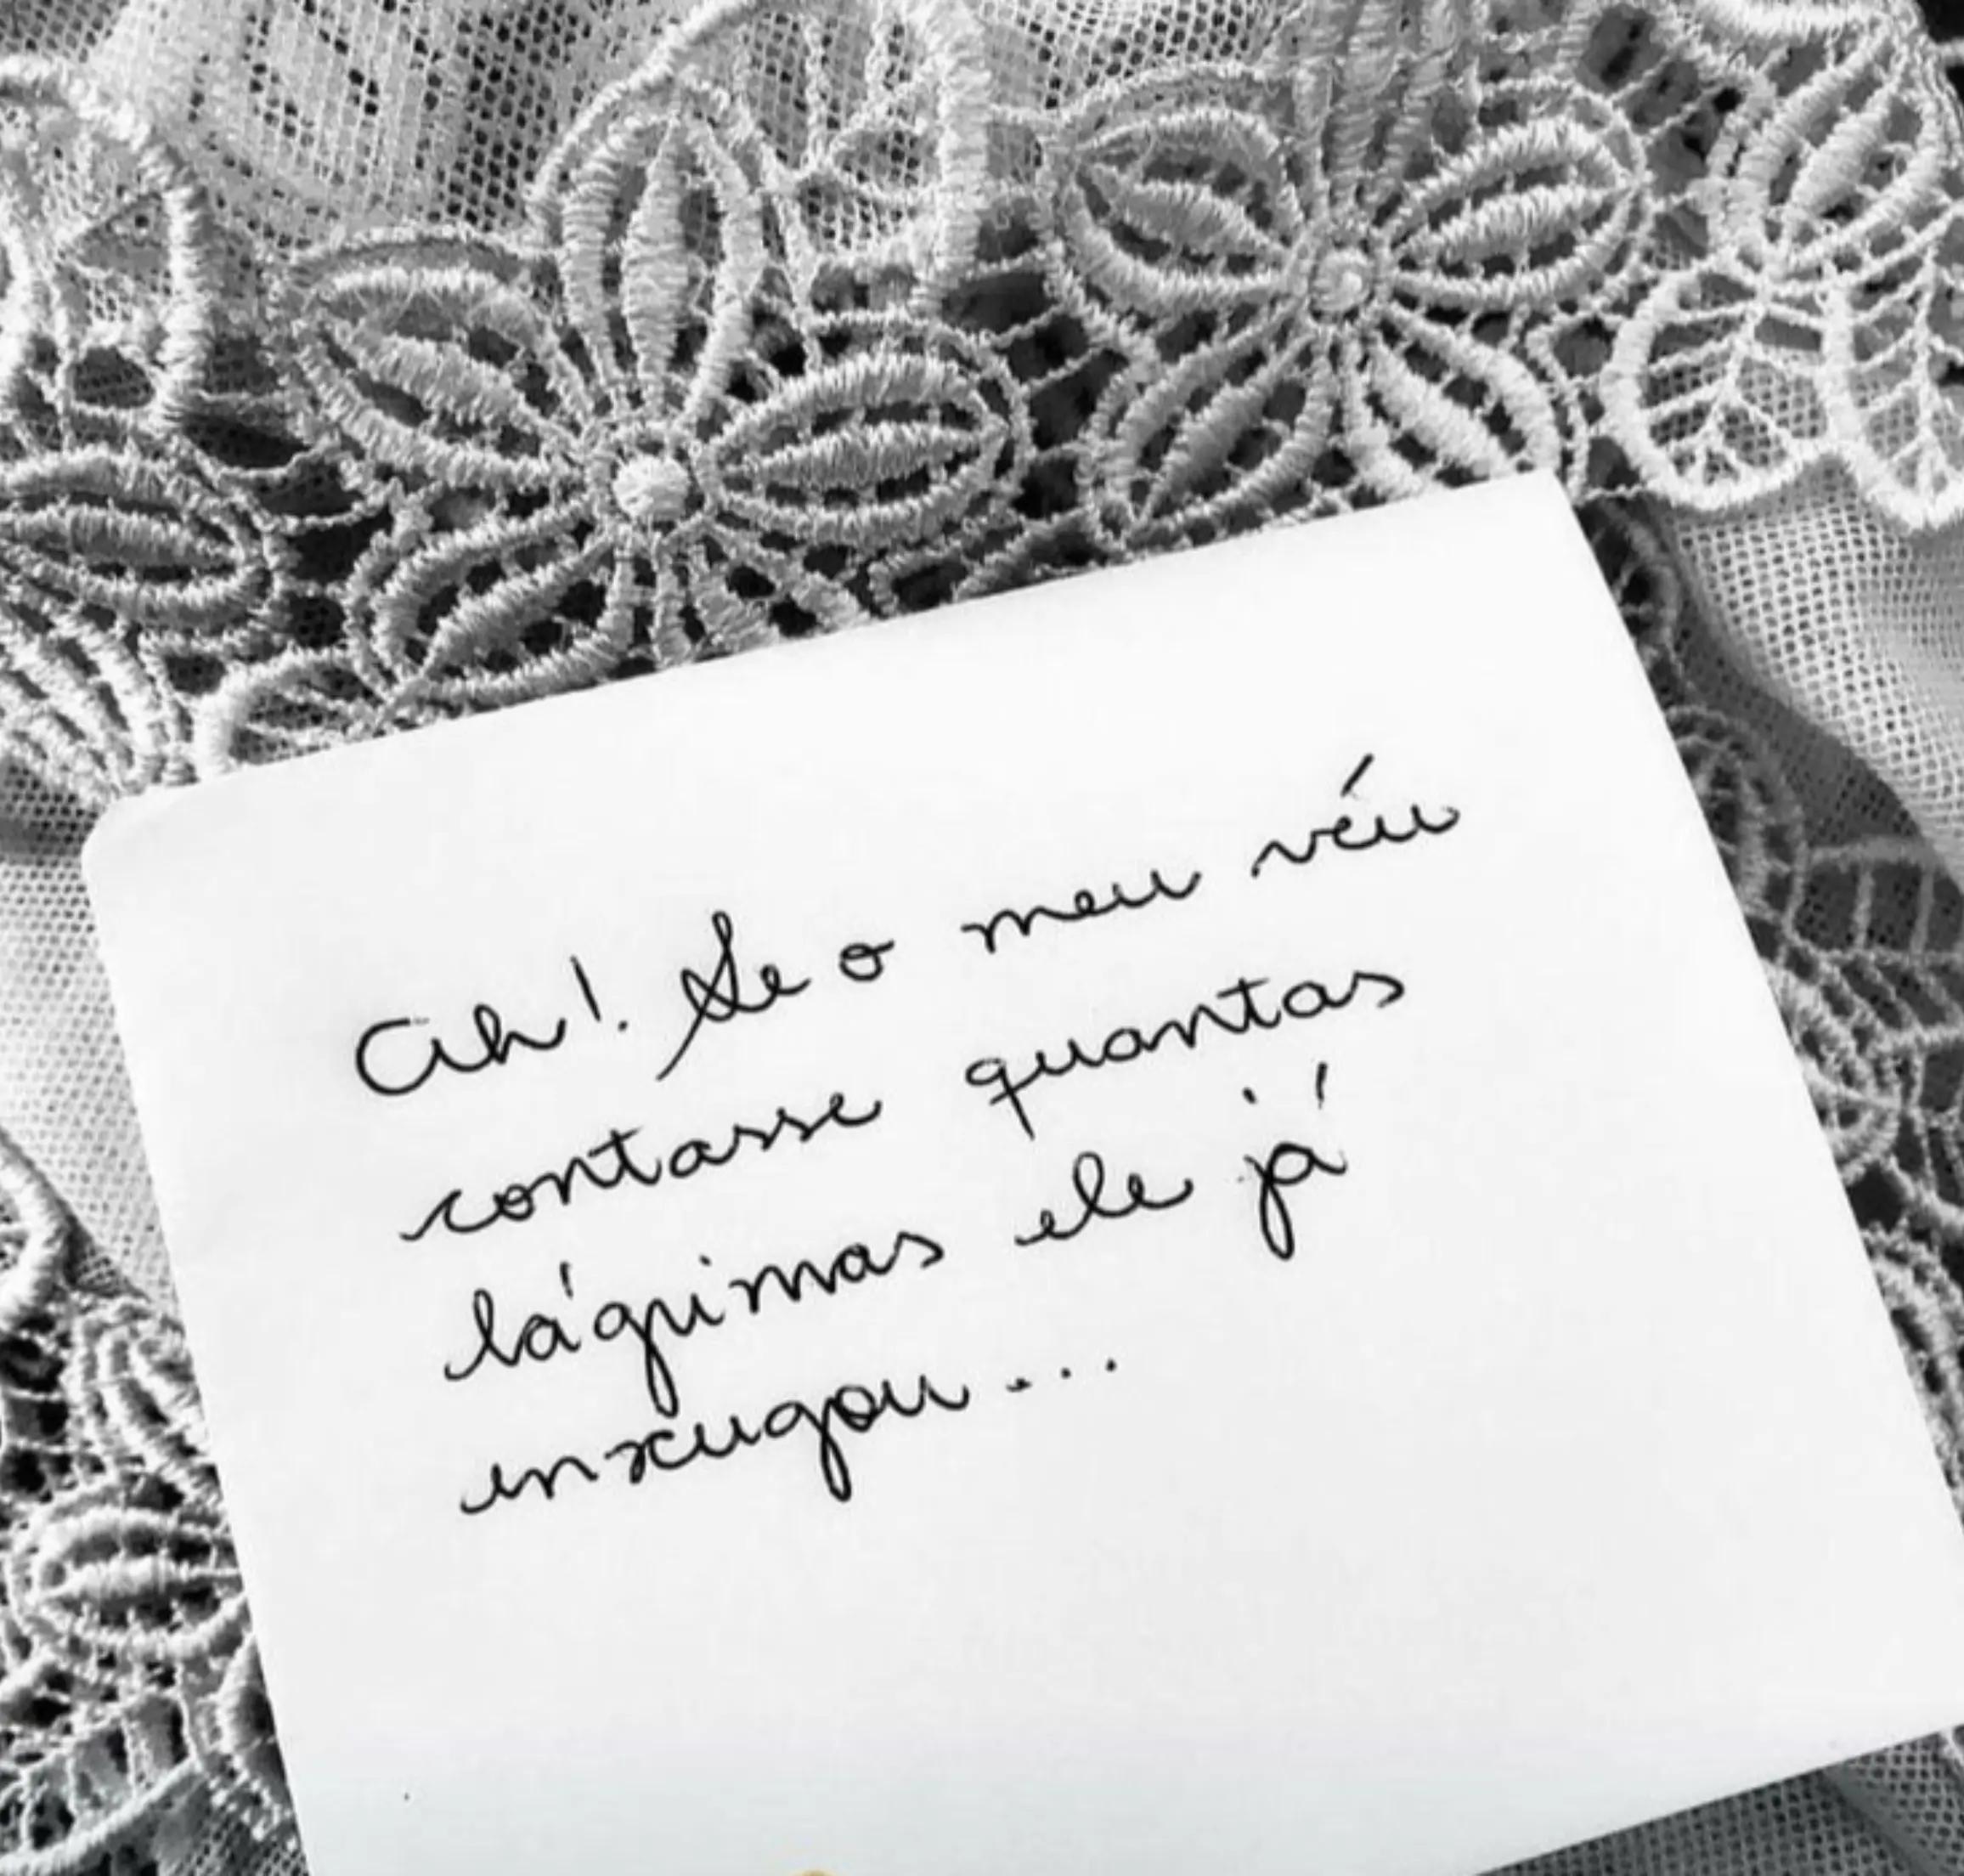 Ah! Se o meu véu
contasse quantas
lágrimas ele já
enxugou...